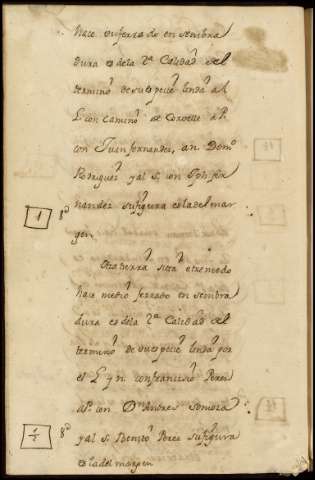 hace un ferrado en sembra
dura es de la 2ª Calidad del
termino de su especie linda al
L. con camino de P.
con Juan fernandez, a n. Domº
Rodriguez y al S. con Jph. fer
nandez su figura es la del mar
1 8º gen
Otra tierra sita
hace medio ferrado en sembra
dura es de la 2ª Calidad del
termino de su especie linda por
el L. y n. con francisco Perez
a P. con Dn Andres Somoza
1/2 8º y al S. Benito Perez su figura
es la del margen